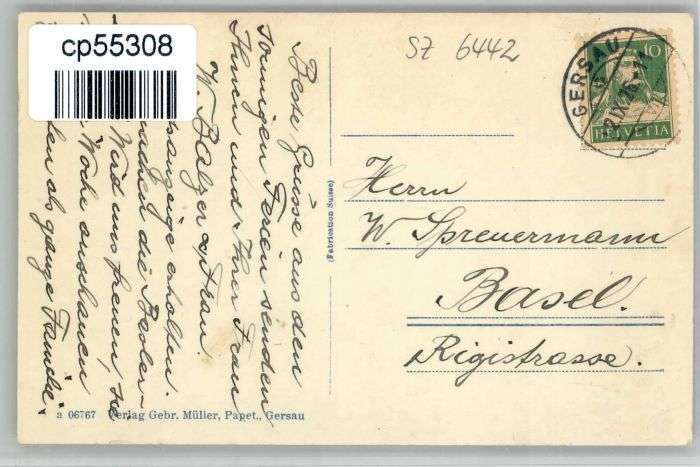 cp55308
SZ 6442
GERSAU
10
HELVETIA
Beste Grüsse aus den
sonnigen Ferien senden
Ihnen und Ihrer Frau
W. Balzer & Frau.
anzeige erhalten.
die Basler-
Wird uns freuen, sie
Woche anschauen
als ganze Familie.
(Fabrication Suisse)
Herrn
W. Spreuermann
Basel.
Rigistrasse.
a 06767 Verlag Gebr. Müller, Papet., Gersau